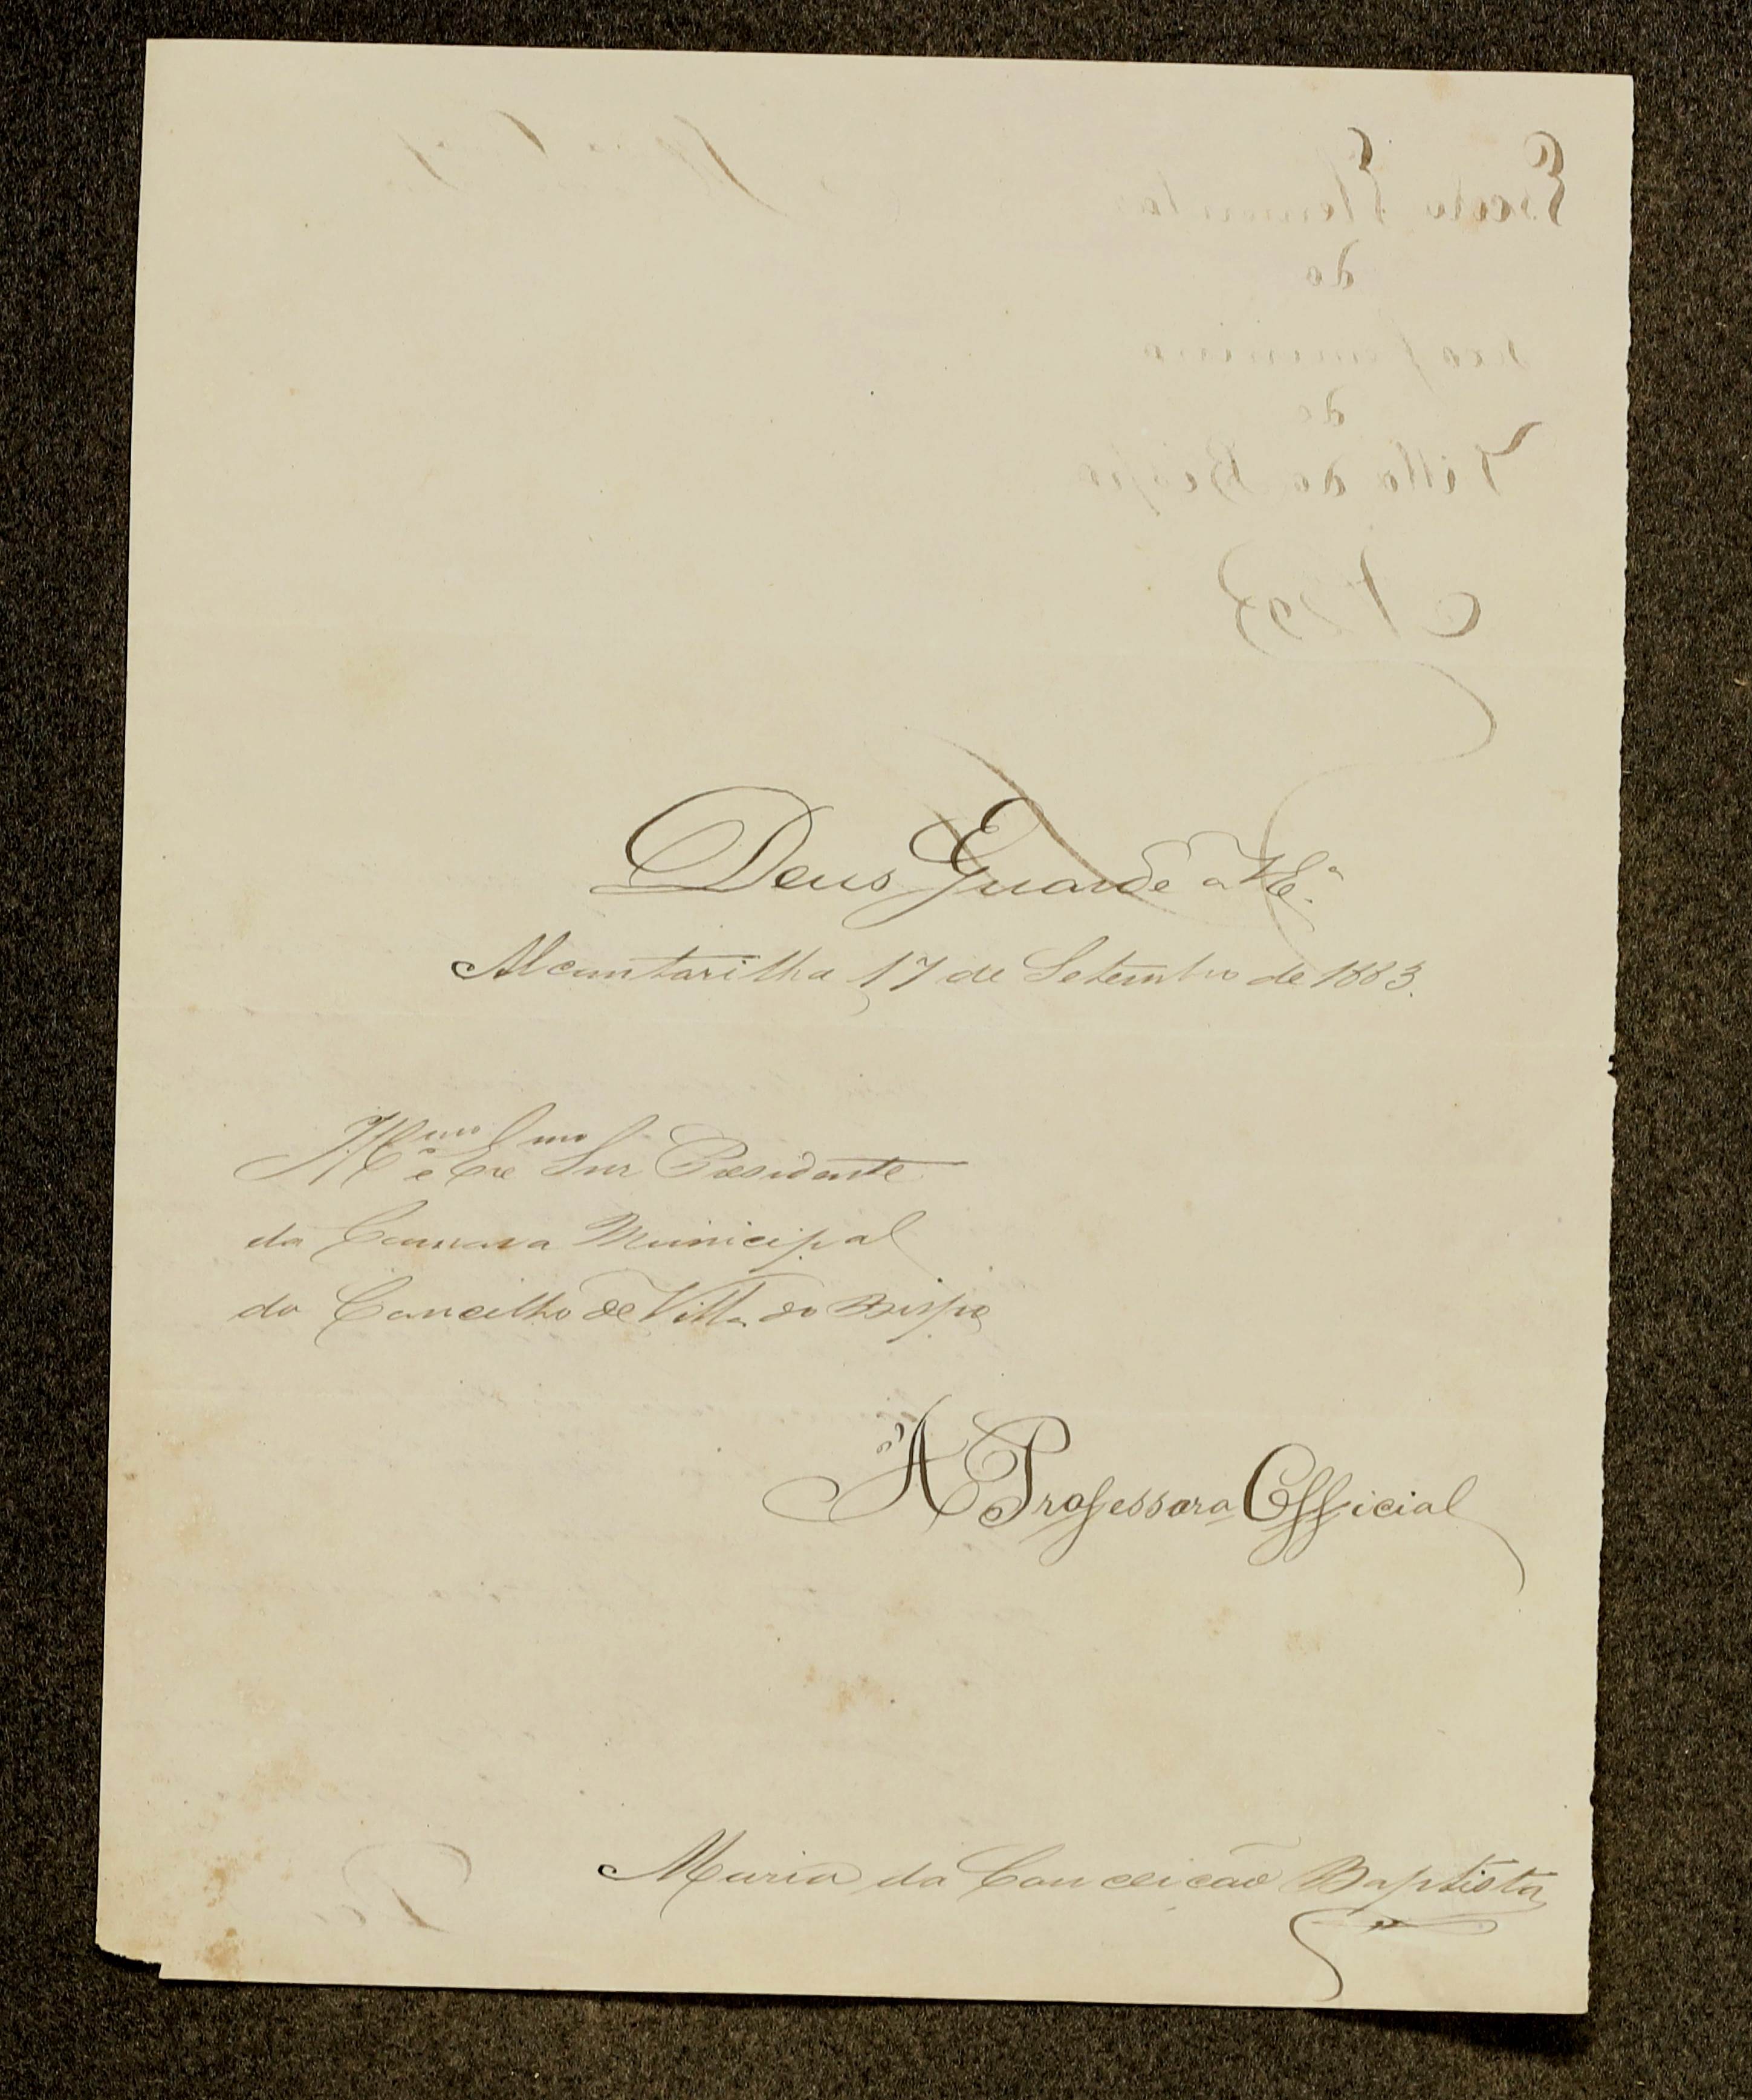 Deus Guarde a V Ex.ª
Alcantarilha 17 de Setembro de 1883.
Ill.mo e Exc.mo Snr Presidente
da Camara Municipal
do Concelho de Villa do Bispo
A Professora Official
Maria da Conceicão Baptista